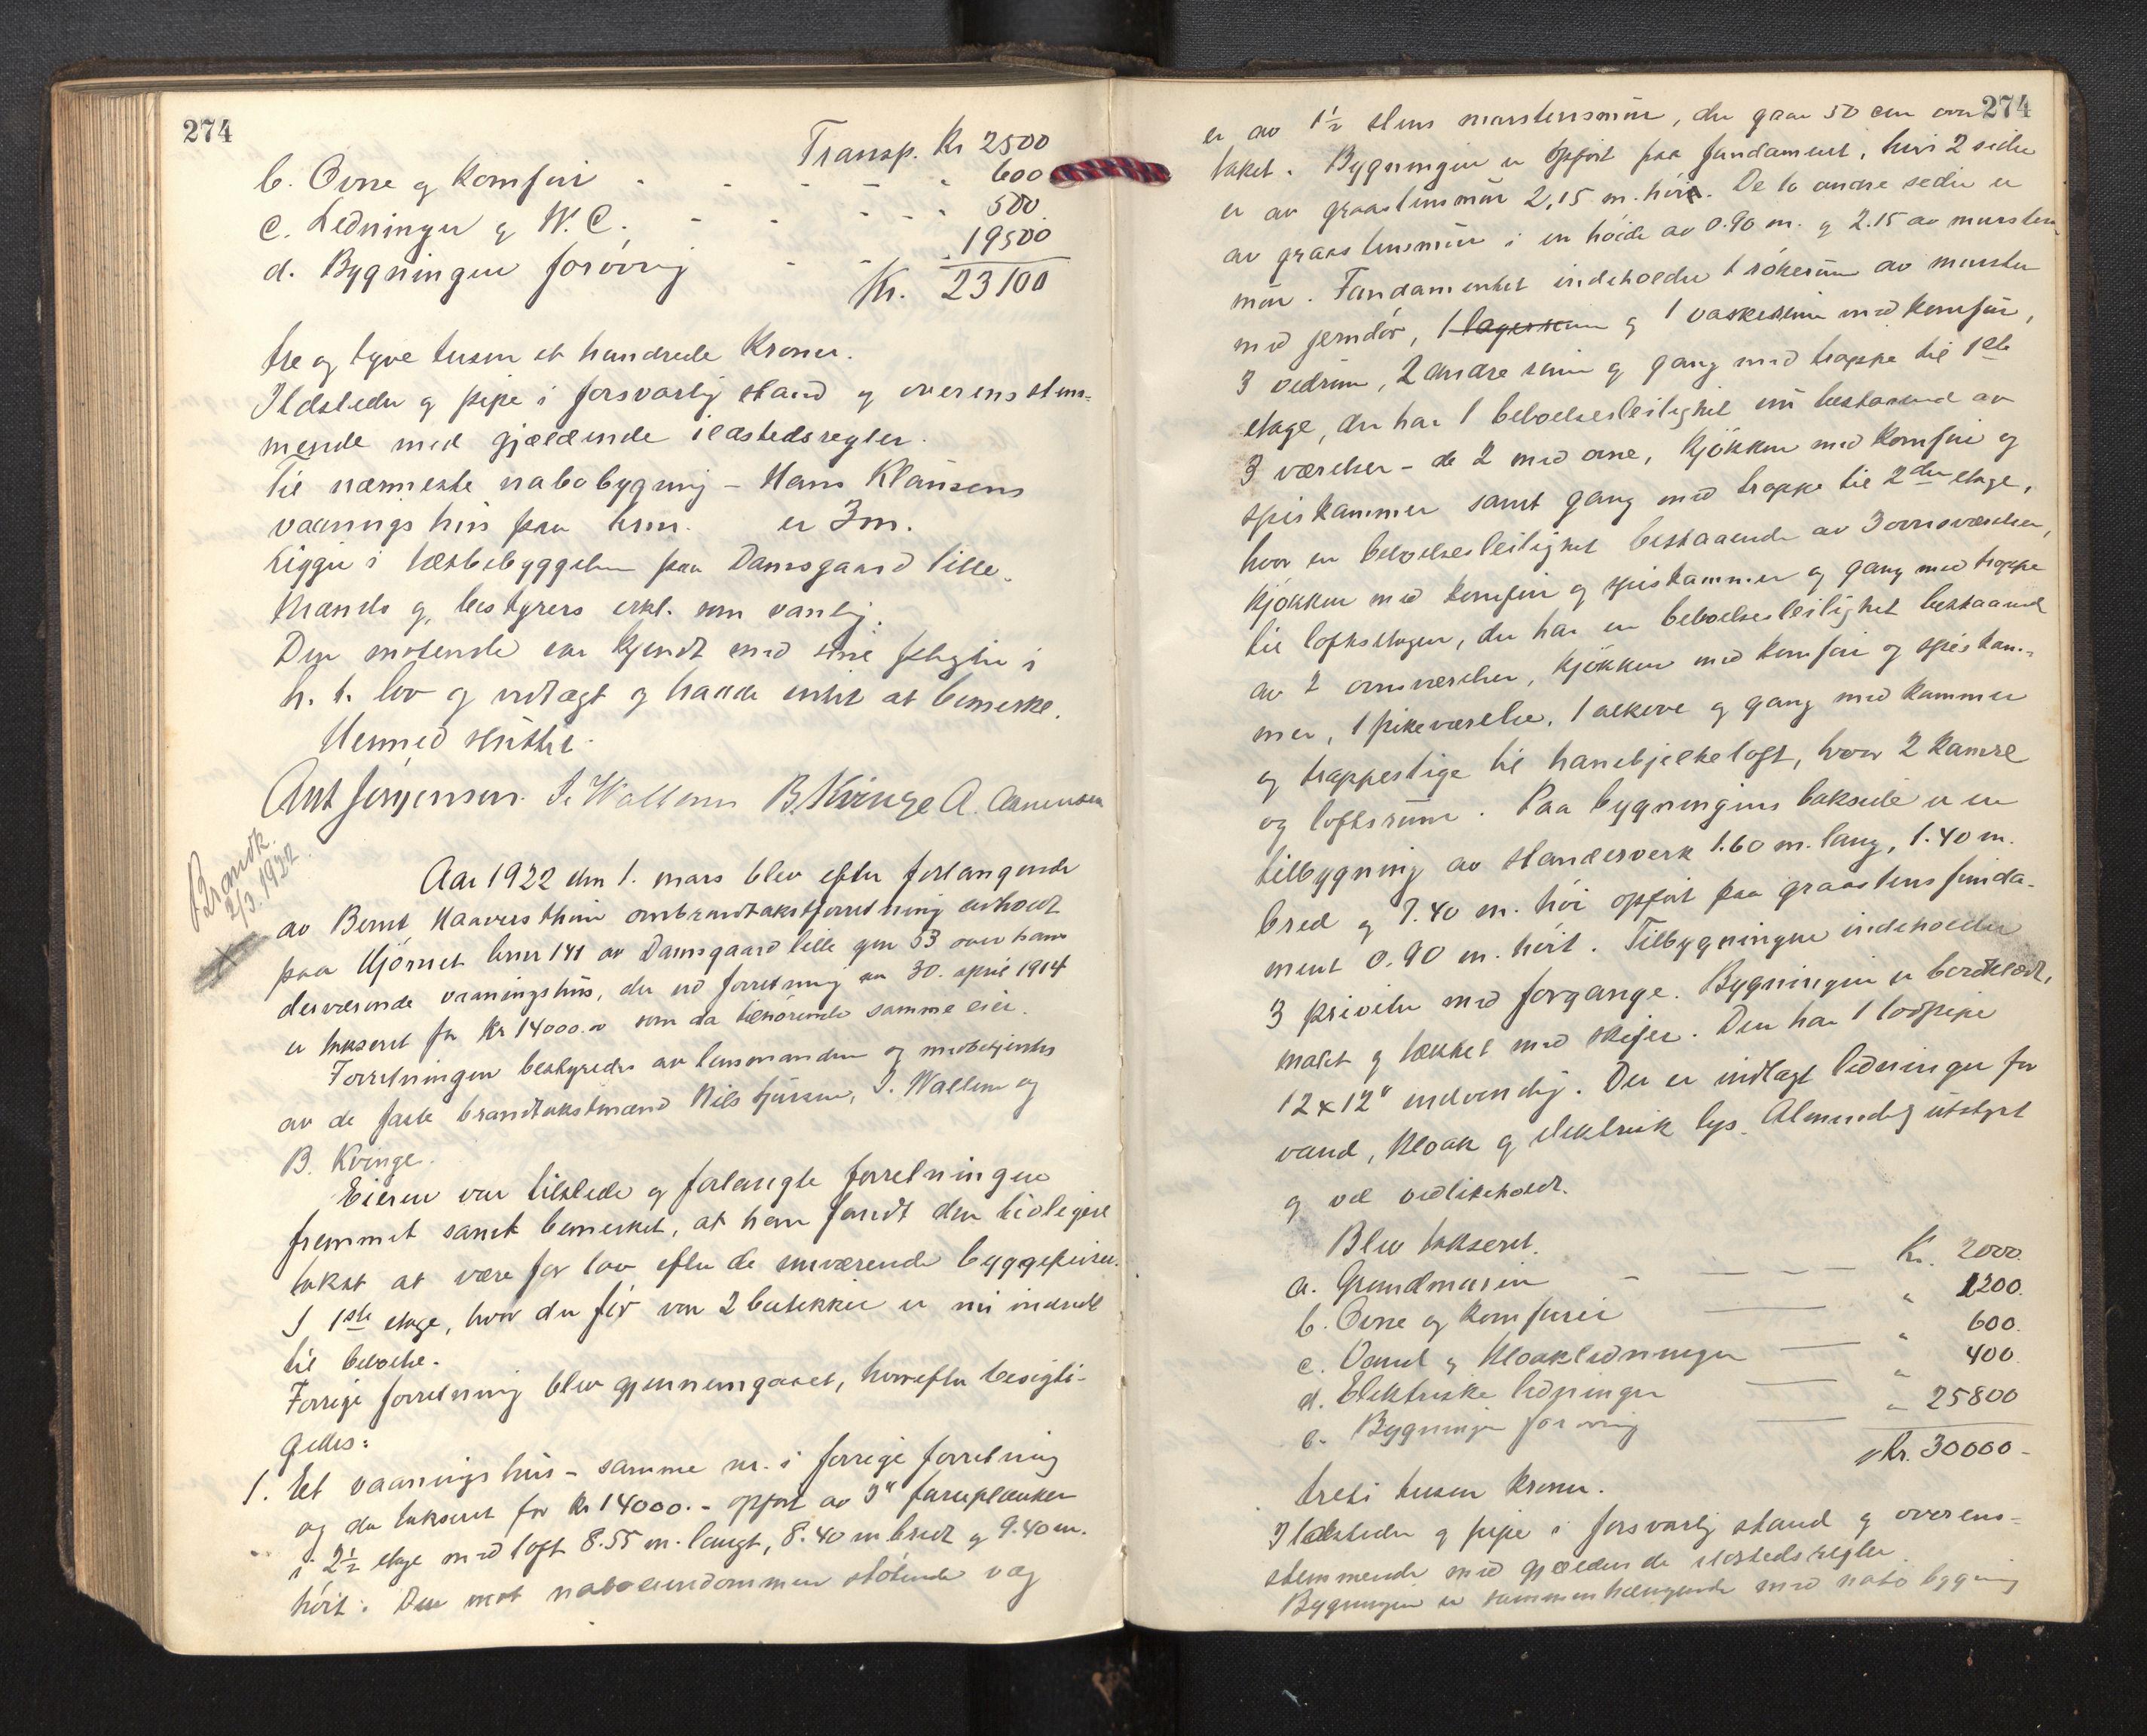 274
Transp. Kr 2500
b. Ovne og komfur - - - - - 600
c. Ledninger og W.C. - - - - - 500.
d. Bygningen forövrig - - - 19500
Kr. 23100
tre og tyve tusen et hundrede Kroner.
Ildsteder og pipe i forsvarlig stand og overensstem=
mende med gjældende ildstedsregler.
Til nærmeste nabobygning - Hans Klausens
vaaningshus paa brnr. er 3m.
Ligger i tætbebyggelsen paa Damsgaard lille.
Mænds og bestyrers erkl. som vanlig.
Den mötende var kjendt med sine pligter i
h. t. lov og vedtægt og hadde intet at bemerke.
Hermed sluttet.
Ant Jörgensen. I. Wallem B. Kvinge A.
Brandk.
2/3.1922.
Aar 1922 den 1. mars blev efter forlangende
av Bernt Haaversthun ombrandtakstforretning avholdt
paa Hjörnet brnr 141 av Damsgaard lille gnr 53 over hans
derværende vaaningshus, der ved forretning av 30. april 1914
er takseret for Kr 14000.00 som da tilhörende samme eier.
Forretningen bestyredes av lensmanden og medbetjentes
av de faste brandtakstmænd Nils, I. Wallem og
B. Kvinge.
Eieren var tilstede og forlangte forretningen
fremmet samt bemerket, at han fandt den tidligere
takst at være for lav efter de nuværende byggepriser.
I 1ste etage, hvor der för var 2 butikker er nu indredet
til beboelse.
Forrige forretning blev gjennemgaaet, hvorefter besigti-
gedes:
1. Et vaaningshus - samme nr. i forrige forretning
og da takseret for Kr 14000.- opfört av 3" furuplanker
i 2½ etage med loft 8.55 m. langt, 8.40 m bredt og 9.40 m.
höit. Den mot naboeiendommen stötende væg
274
er av 1½ stens murstensmur, der gaar 50 cm over
taket. Bygningen er opfört paa fundament, hvis 2 sider
er av graastensmur 2,15 m. höie. De to andre sider er
av graastensmur i en höide av 0.90 m. og 2.15 av mursten
mur. Fundamentet indeholder 1 rökerum av mursten
med jerndör, 1 lagerrum og 1 vaskerum med komfur,
3 vedrum, 2 andre rum og gang med trappe til 1ste
etage, der har 1 beboelsesleilighet nu bestaaende av
3 værelser - de 2 med ovne, kjökken med komfur og
spiskammer samt gang med trappe til 2den etage,
hvor en beboelsesleilighet bestaaende av 3 ovnsværelser,
kjökken med komfur og spiskammer og gang med trappe
til loftsetagen, der har en beboelsesleilighet bestaaende
av 2 ovnsværelser, kjökken med komfur og spiskam-
mer, 1 pikeværelse, 1 alkove og gang med kammer
og trappestige til hanebjelkeloft, hvor 2 kamre
og loftsrum. Paa bygningens bakside er en
tilbygning av standerverk 1.60 m. lang, 1.40 m.
bred og 7.40 m. höi opfört paa graastensfunda-
ment 0.90 m. höit. Tilbygningen indeholder
3 priveter med forgange. Bygningen er bordklædt,
malet og tækket med skifer. Den har 1 lodpipe
12x12" indvendig. Der er indlagt ledninger for
vand, kloak og elektrisk lys. Almindelig utstyrt
og vel vedlikeholdt.
Blev takseret.
a. Grundmuren - - - - Kr. 2000.
b. Ovne og komfurer - " 1200.
c. Vand og kloakledninger - " 600.
d. Elektriske ledninger - " 400.
e. Bygningen forövrig - " 25800
Kr. 30000-
treti tusen kroner.
Ildsteder og pipe i forsvarlig stand og overens=
stemmende med gjældende ildstedsregler.
Bygningen er sammenhængende med nabobygning